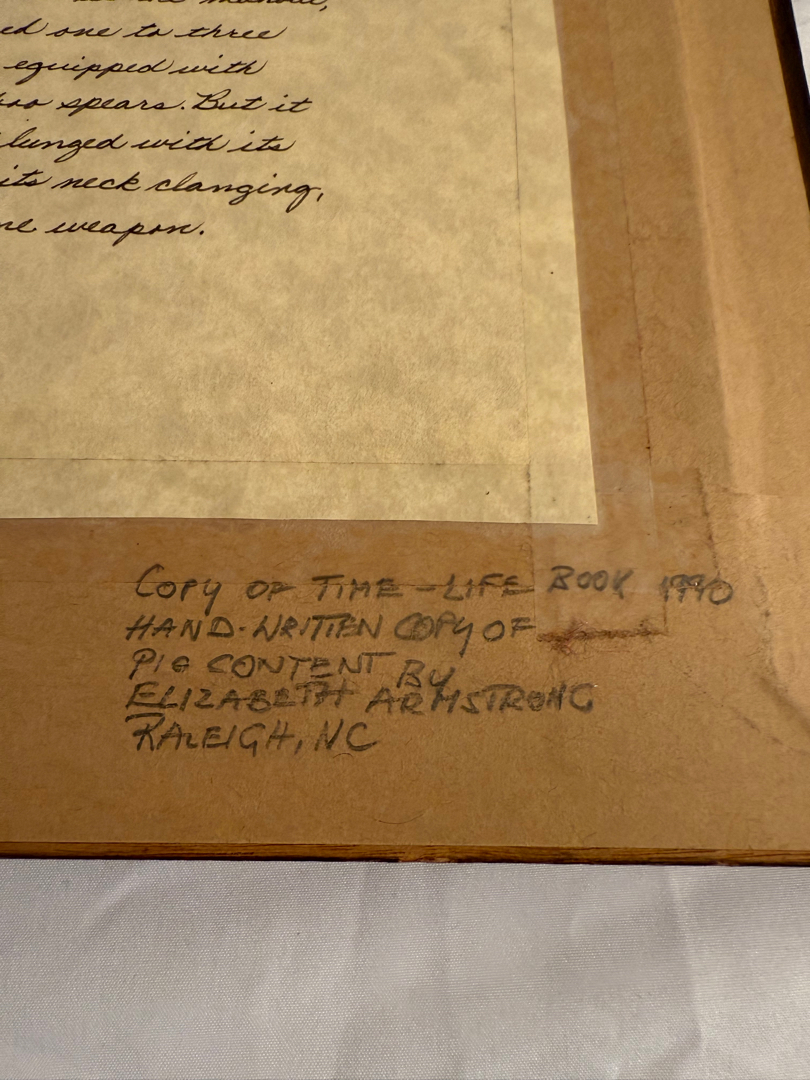 ed one to three
equipped with
boo spears. But it
lunged with its
its neck clanging,
ne weapon.
COPY OF TIME-LIFE BOOK 1990
HAND-WRITTEN COPY OF
PIG CONTENT BY
ELIZABETH ARMSTRONG
RALEIGH, NC